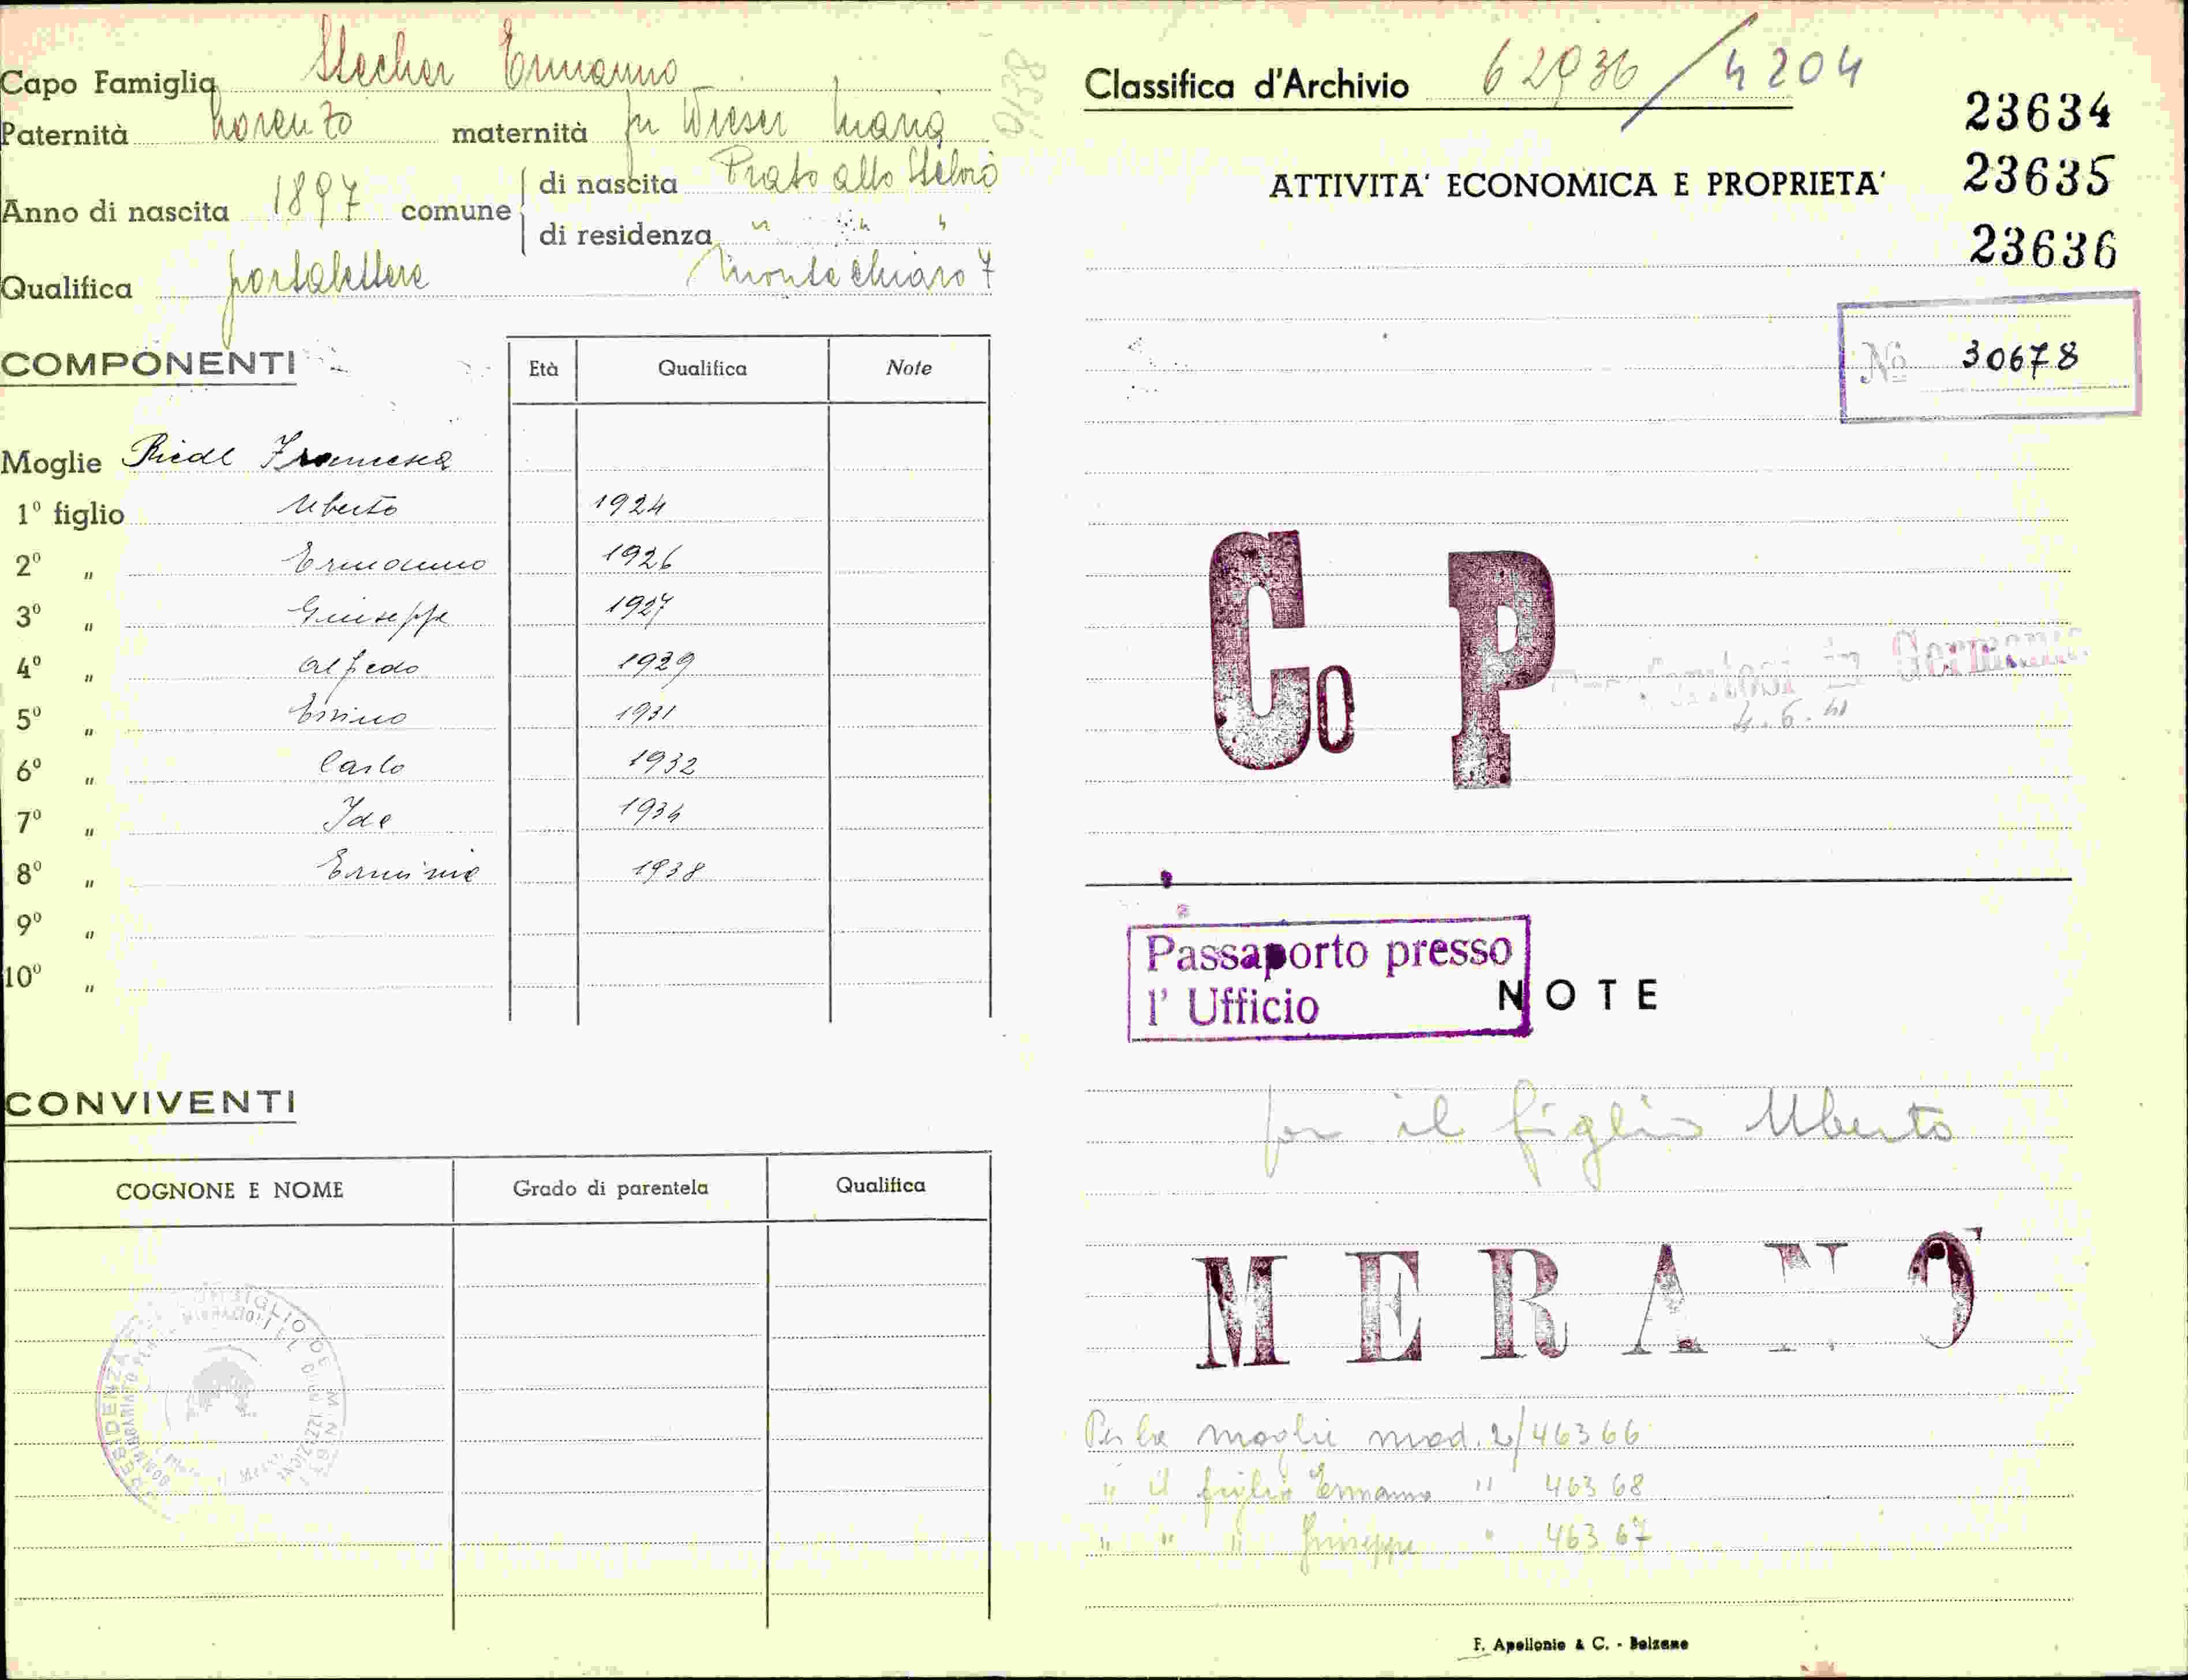 Capo Famiglia Stecher Ermanno
Paternità Lorenzo maternità fu Wieser Maria
Anno di nascita 1897 comune di nascita Prato allo Stelvio
di residenza " " "
Qualifica portalettere Montechiaro 7
COMPONENTI Età Qualifica Note
Moglie Riedl Francesca
1º figlio Uberto 1924
2º " Ermanno 1926
3º " Giuseppe 1927
4º " Alfredo 1929
5º " Enrico 1931
6º " Carlo 1932
7º " Ida 1934
8º " Erminia 1938
9º "
10º "
CONVIVENTI
COGNONE E NOME Grado di parentela Qualifica
Classifica d'Archivio 62936/4204
23634
ATTIVITA' ECONOMICA E PROPRIETA' 23635
23636
Nº 30678
Co P
in Germania
4.6.41
Passaporto presso
l' Ufficio
NOTE
per il figlio Uberto
MERANO
Per la moglie mod. 2/46366
" il figlio Ermanno " 46368
" " " Giuseppe " 46367
F. Apollonio & C. - Bolzano